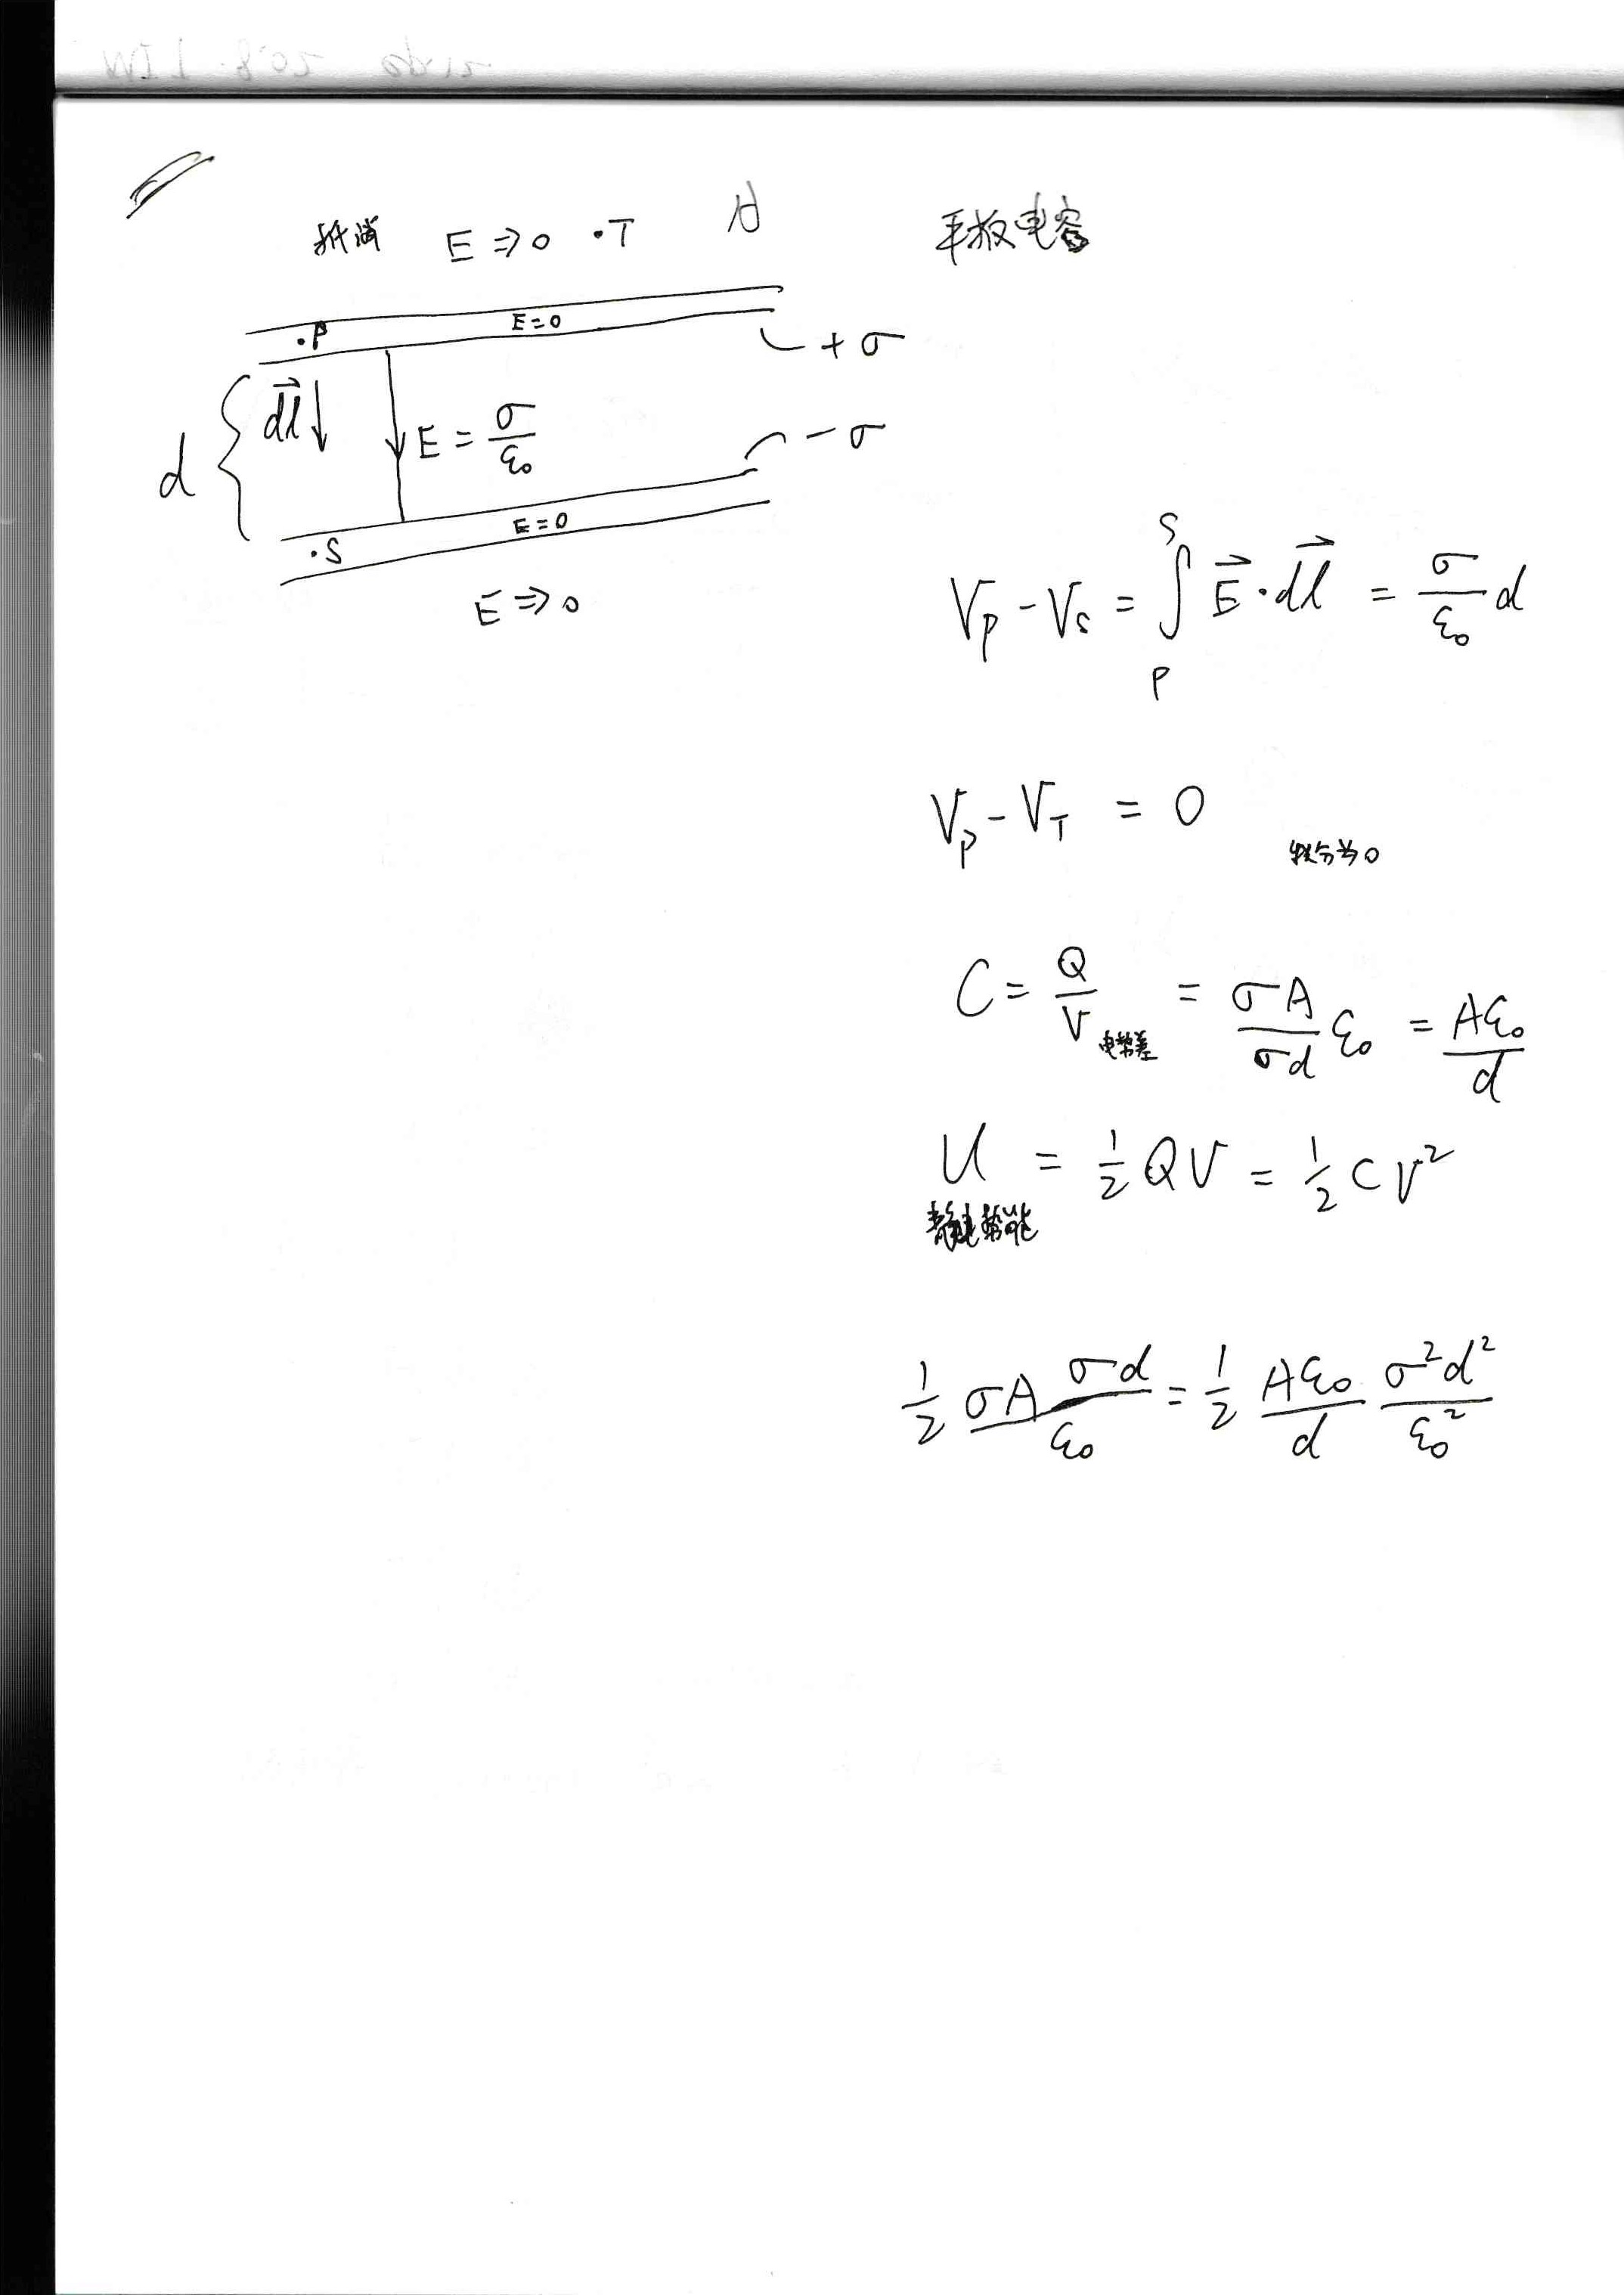 抵消 E ⇒ 0 ·T A 平板电容
·P E=0
+σ
d { dl⃗ ↓ E = σ/ε₀
-σ
·S E=0
E ⇒ 0
V_P - V_S = ∫_P^S E⃗ · dl⃗ = σ/ε₀ d
V_P - V_T = 0 积分为0
C = Q/V 电势差 = σA/σd ε₀ = Aε₀/d
U = 1/2 QV = 1/2 CV²
静电势能
1/2 σA σd/ε₀ = 1/2 Aε₀/d σ²d²/ε₀²